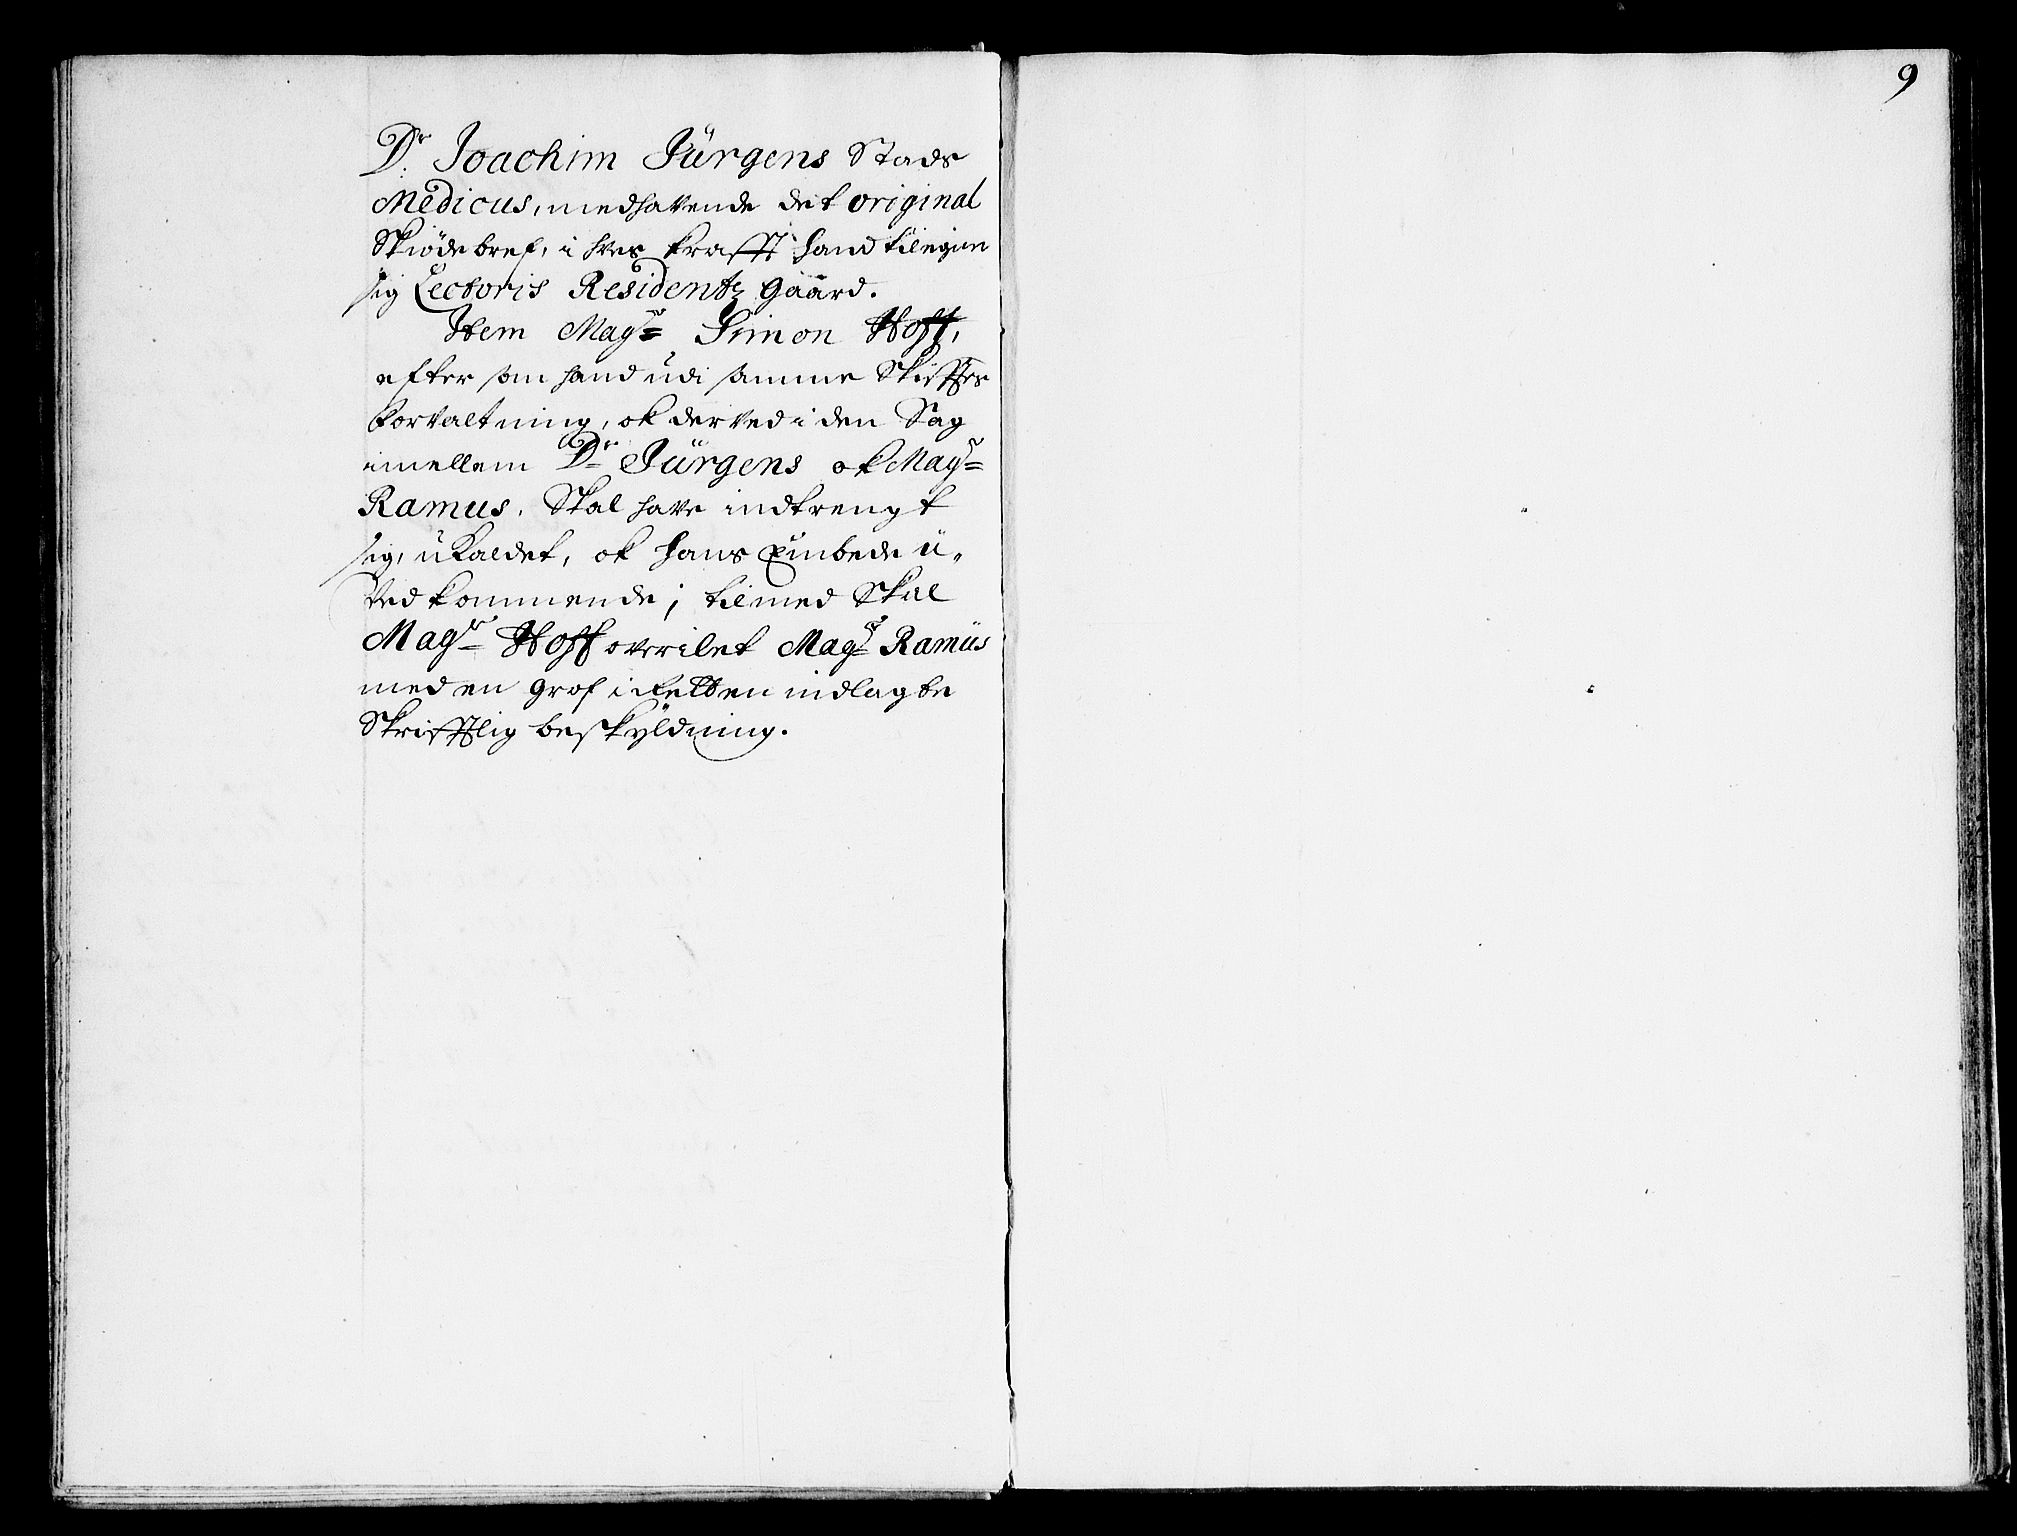 Dr Joachim Jürgens Stads
Medicus, medhavende det original
Skiödebref, i hves krafft hand tilegner
sig Lectoris Residentz gaard.
Item Magr Simon Hoff,
efter som hand udi samme Skifftes
forvaltning, ok derved i den Sag
imellem Dr Jürgens ok Magr
Ramus, Skal have indtrengt
sig, ukaldet, ok hans Embede u-
vedkommende; tilmed Skal
Magr Hoff overilet Magr Ramus
med en grof i Retten indlagte
Skrifftlig beskyldning.
9